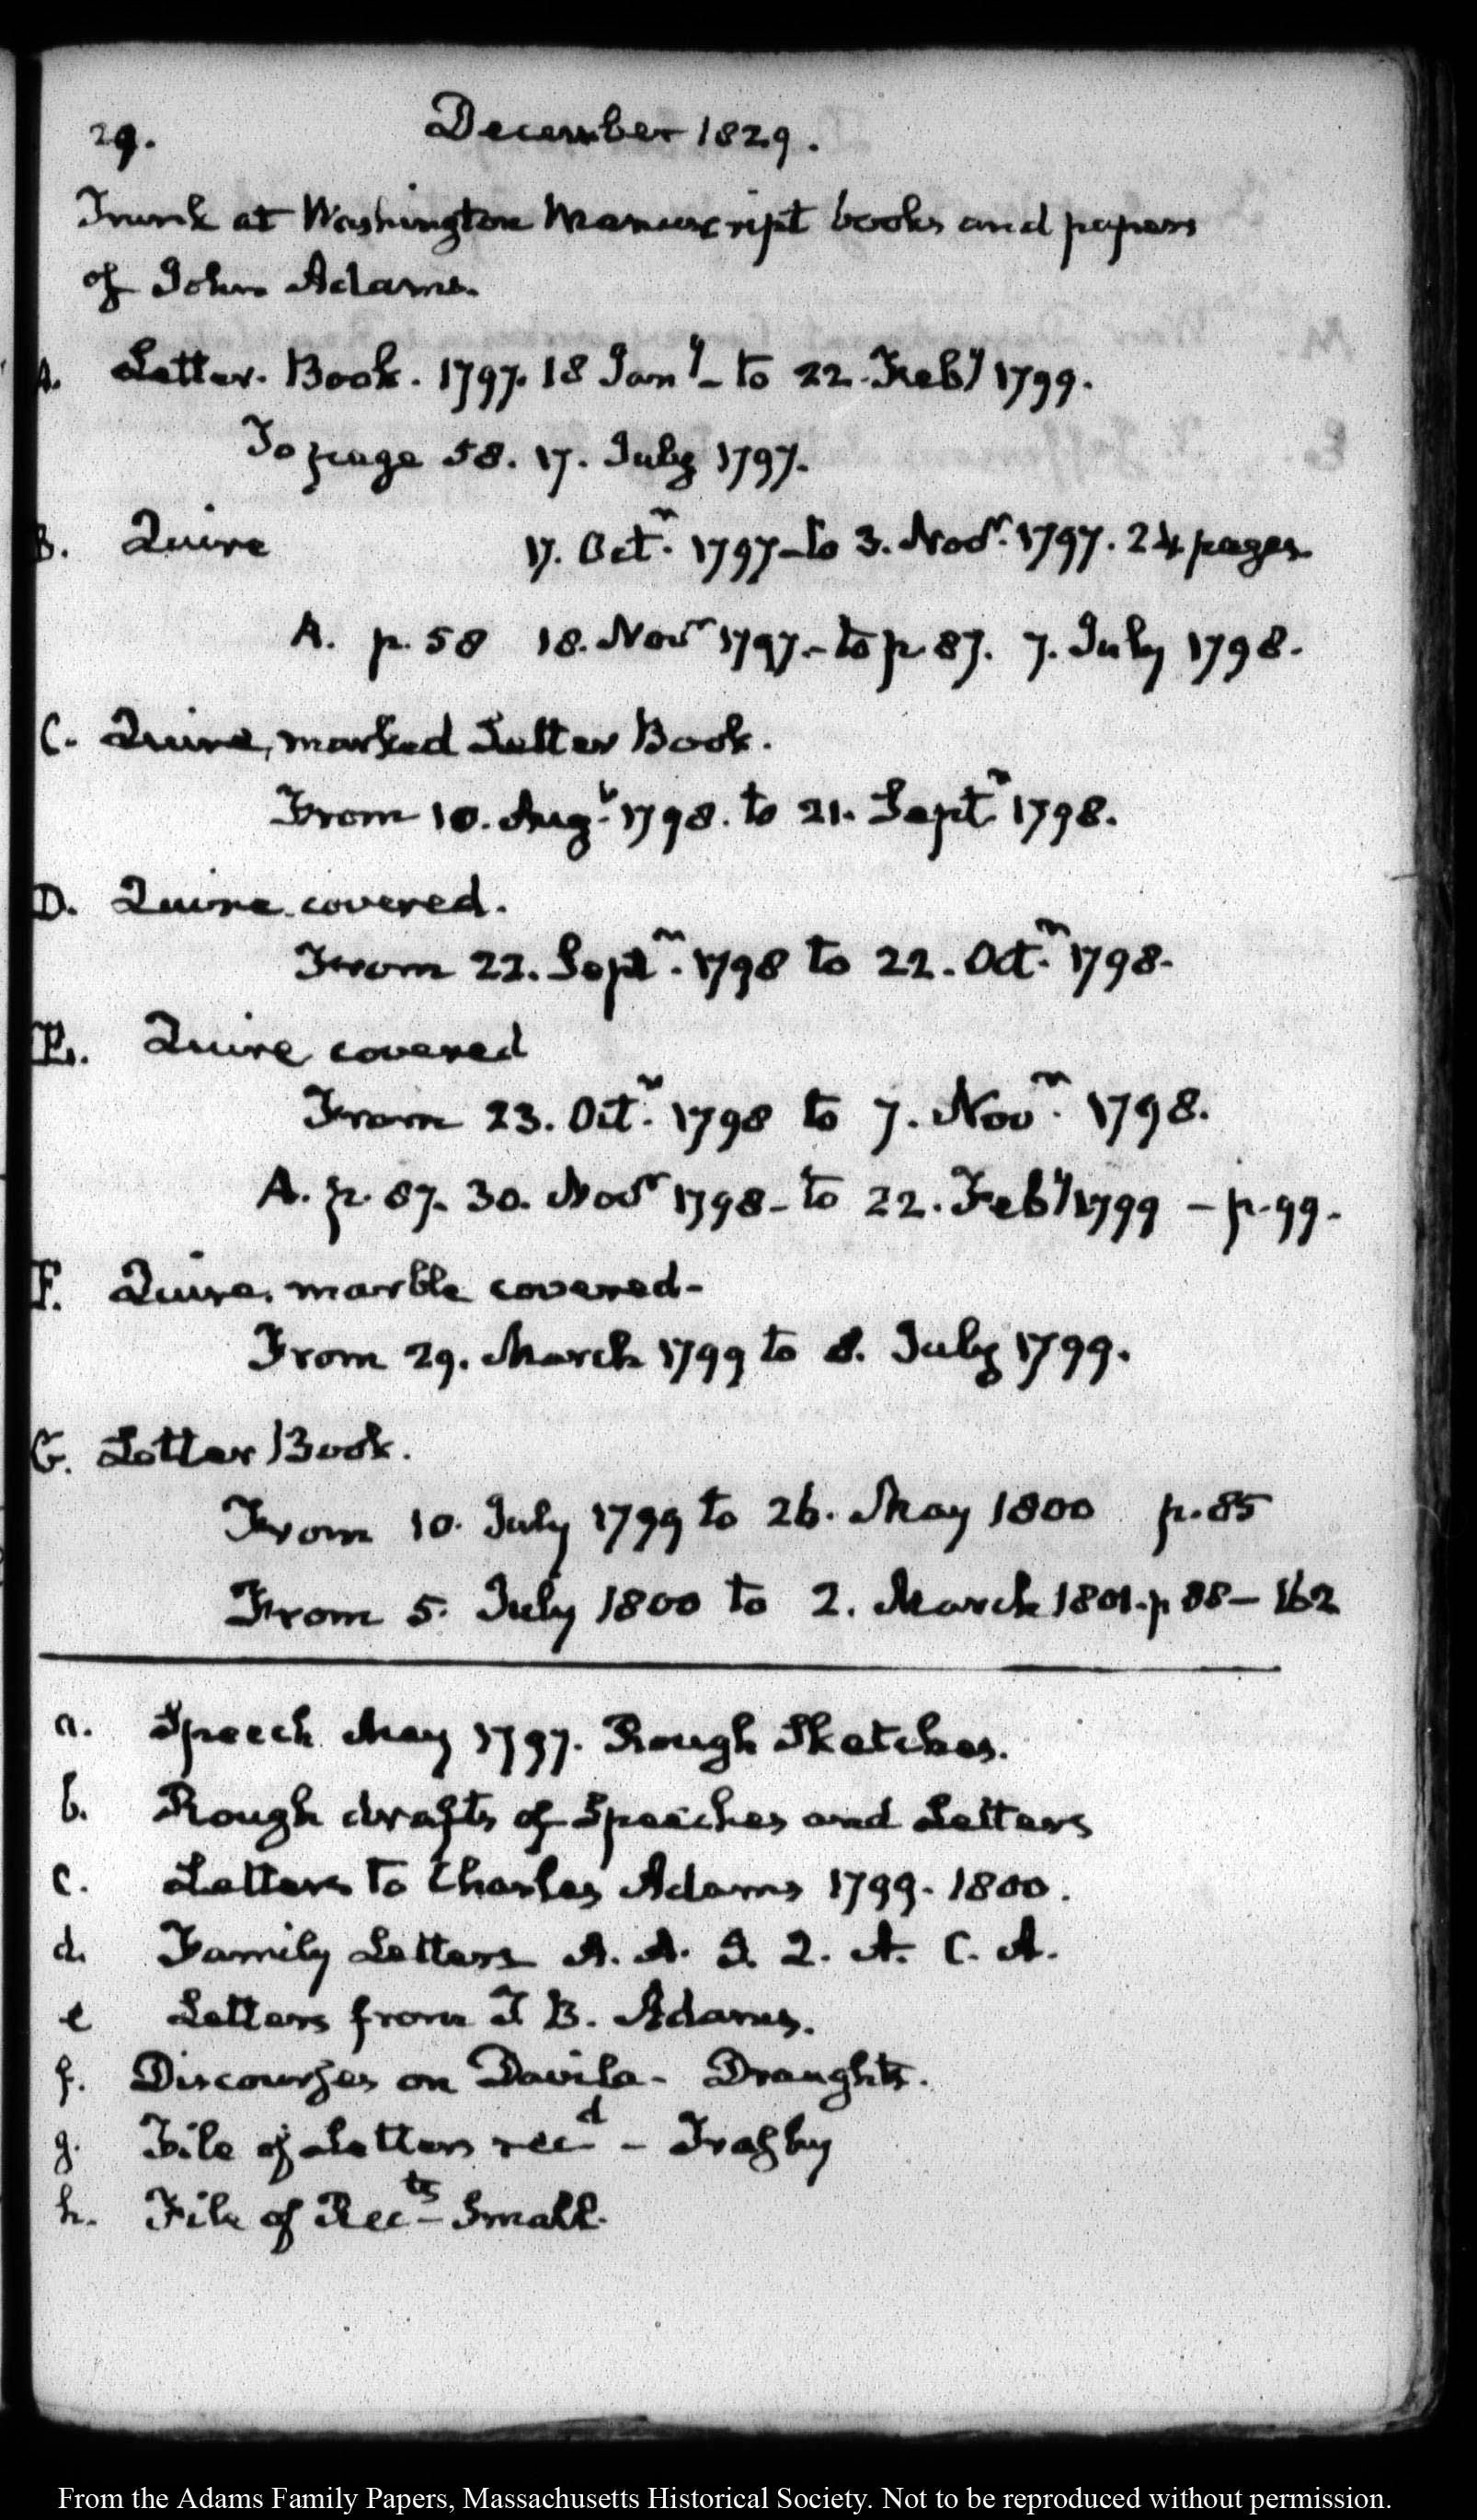 29. December 1829.
Trunk at Washington Manuscript books and papers
of John Adams.
A. Letter. Book. 1797. 18 Jany- to 22. Feby 1799.
To page 58. 17. July 1797.
B. Quire 17. Octr. 1797- to 3. Novr. 1797. 24 pages
A. p. 58 18. Novr 1797.- to p. 87. 7. July 1798.
C. Quire, marked Letter Book.
From 10. Augt. 1798. to 21. Septr 1798.
D. Quire covered.
From 22. Septr. 1798 to 22. Octr. 1798.
E. Quire covered
From 23. Octr. 1798 to 7. Novr. 1798.
A. p. 87. 30. Novr 1798- to 22. Feby 1799 - p. 99.
F. Quire, marble covered-
From 29. March 1799 to 8. July 1799.
G. Letter Book.
From 10. July 1799 to 26. May 1800 p. 85
From 5. July 1800 to 2. March 1801. p 88- 162
a. Speech May 1797. Rough Sketches.
b. Rough drafts of Speeches and Letters
c. Letters to Charles Adams 1799. 1800.
d. Family Letters A. A. J. Q. A. C. A.
e Letters from T B. Adams.
f. Discourses on Davila- Draughts.
g. File of Letters recd -
h. File of Rects- Small.
From the Adams Family Papers, Massachusetts Historical Society. Not to be reproduced without permission.